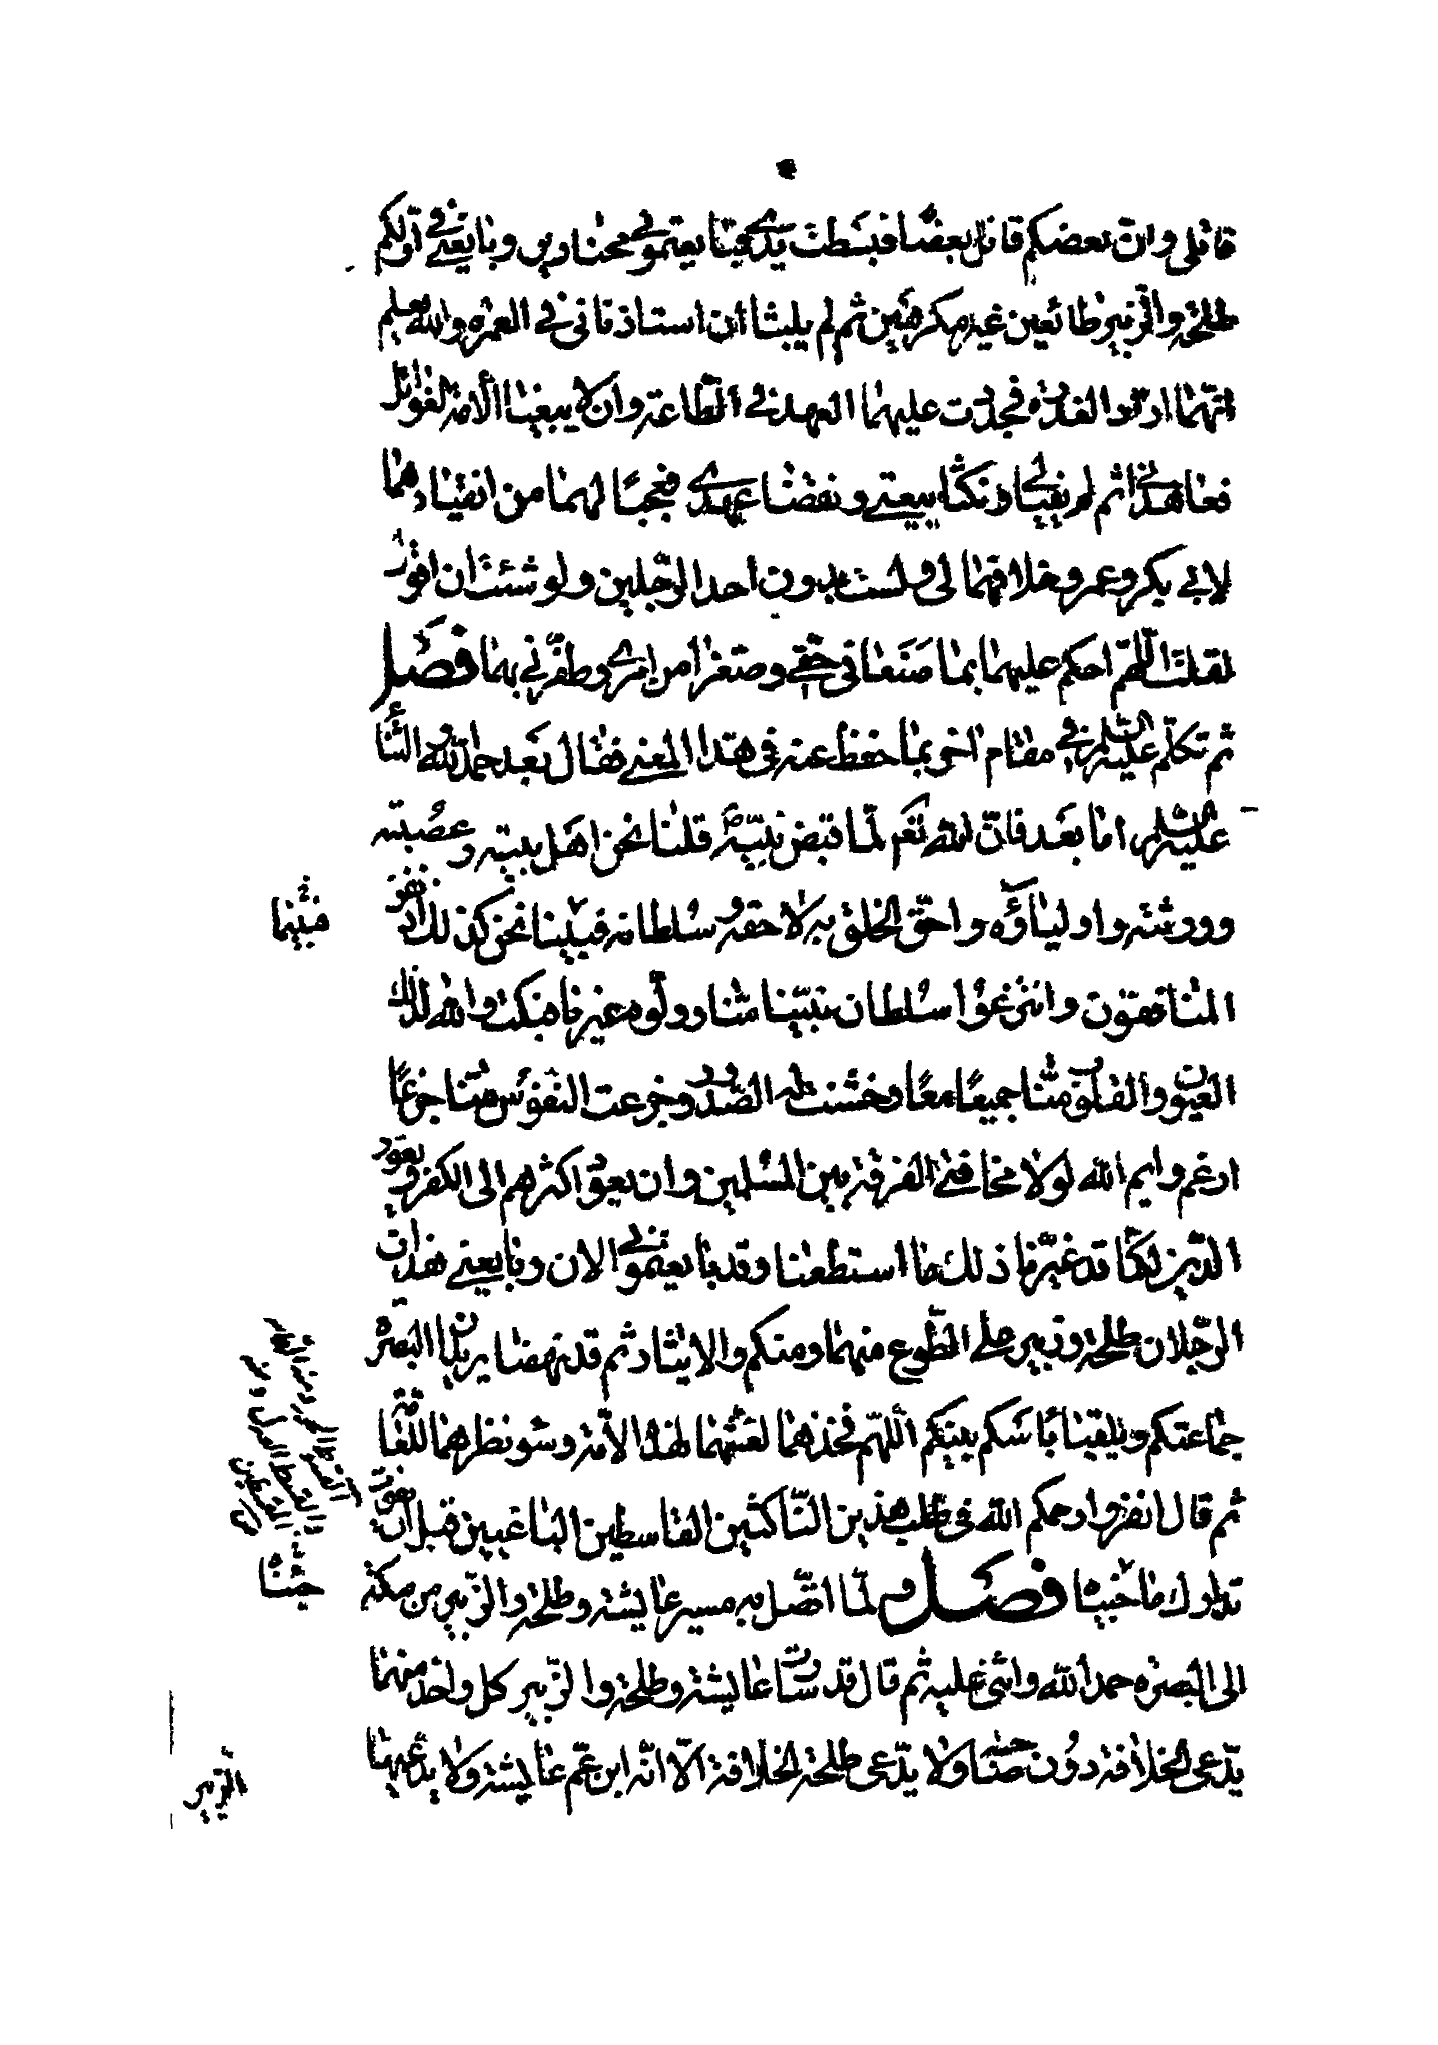 قاتلي وانّ بعضكم قاتل بعضا فبسطت يدي فبايعتموني مختارين وبايعني في اوّلكم
طلحة والزبير طائعين غير مكرهين ثم لم يلبثا أن استاذناني في العمره والله يعلم
انّهما ارادا الغدره فجدّدت عليهما العهد في الطّاعة وان لا يبغيا الأمة الغوائل
فعاهداني ثم لم يفيا لي ونكثا بيعتي ونقضا عهدي فعجبًا لهما من انقيادهما
لابي بكر وعمر وخلافهما لي ولست بدون احد الرّجلين ولو شئت ان اقول
لقلت اللهمّ احكم عليهما بما صنعا في حقّي وصغّرا من امري وظفّرني بهما فصل
ثم تكلّم عليه السّلم في مقام اخر بما حفظ عنه في هذا المعني فقال بعد حمد الله والثناء
عليه السلم اما بعد فانّ الله تع لمّا قبض نبيّه ص قلنا نحن اهل بيته وعصبته
وورثته واولياؤه واحقّ الخلق به لا حقه وسلطانه فبينا نحن كذلك اذ نفر
المنافقون وانتزعوا سلطان نبيّنا منّا وولّوه غيرنا فبكت والله لذلك
العيون والقلوب منّا جميعًا معًا وخشنت له الصّدور وجزعت النفوس منّا جزعًا
ارغم وايم الله لولا مخافتي الفرقة بين المسلمين وان يعود اكثرهم الى الكفر ويعود
الدّين لكنّا قد غيّرنا ذلك ما استطعنا وقد بايعتموني الان وبايعني هذان
الرّجلان طلحة وزبير على الطّوع منهما ومنكم والايثار ثم قد نهضا يريدان البصرة
جماعتكم ويلقيا بأسكم بينكم اللهمّ فخذهما لغشّهما لهذه الأمّة وسوء نظرهما للعامّة
ثم قال انفروا رحمكم الله في طلب هذين النّاكثين القاسطين الباغيين قبل ان يفوت
تدارك ما جنياه فصل ولمّا اتصّل به مسير عايشة وطلحة والزّبير من مكة
الى البصره حمد الله واثنى عليه ثم قال قد سارت عايشة وطلحة والزّبير كل واحد منهما
يدّعى الخلافة دون صاحبه ولا يدّعى طلحة الخلافة الّا انّه ابن عمّ عايشة ولا يدّعيها
فبينما
جنيا
الزّبير